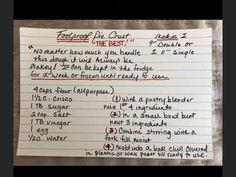 Foolproof Pie Crust
"THE BEST!"
makes 1
9" Double or
1 8" Single
"No matter how much you handle
this dough it will always be
flakey! It can be kept in the fridge
for a week or frozen until ready to use.
4 cups flour (all purpose)
1 1/2 c. crisco
1 TB sugar
2 tsp. salt
1 TB vinegar
1 egg
1/2 c. Water
① with a pastry blender
1st 4 ingredients
② In a small bowl beat
next 3 ingredients
③ Combine stirring with a
fork till moist
④ mold into a ball chill covered
in plastic or wax paper till ready to use.